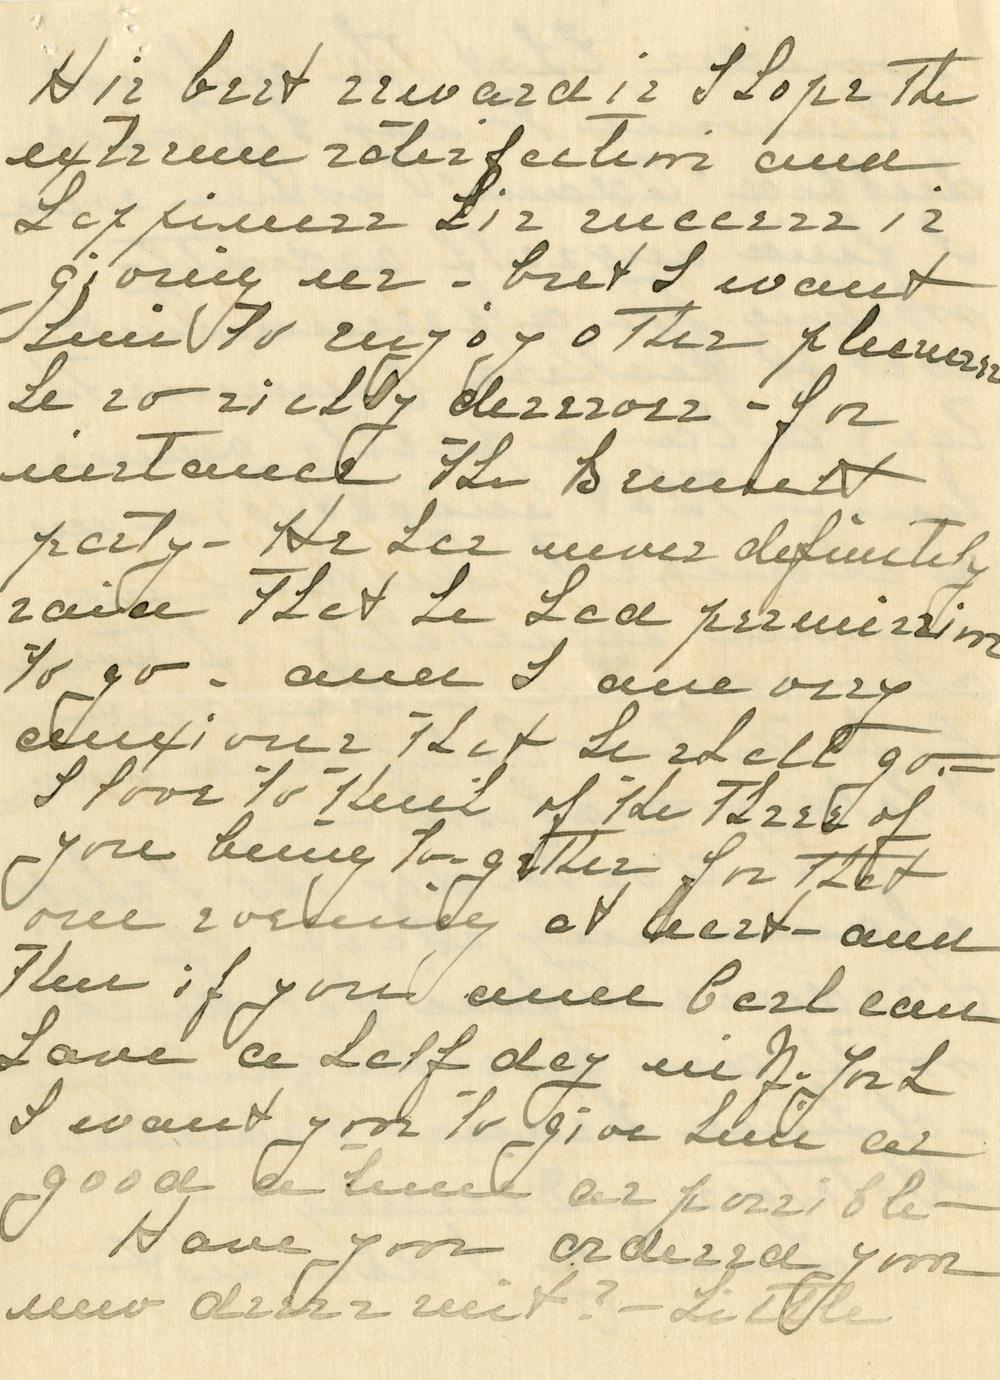 His best reward is I hope the
extreme satisfaction and
happiness his success is
giving us - but I want
him to enjoy other pleasures
he so richly deserves - for
instance the Bennett
party - He has never definitely
said that he had permission
to go - and I am very
anxious that he shall go -
I love to think of the three of
you being to-gether for that
one evening at least - and
then if you and Carl can
have a half day in N. York
I want you to give him as
good a time as possible -
Have you ordered your
new dress suit? - Little